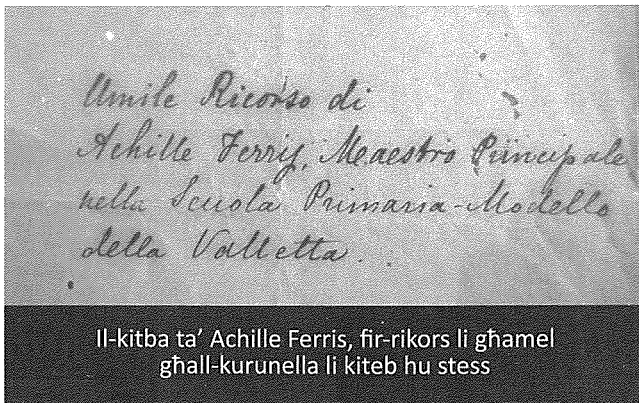 Umile Ricorso di
Achille Ferris, Maestro Principale
nella Scuola Primaria-Modello
della Valletta.
Il-kitba ta’ Achille Ferris, fir-rikors li għamel
għall-kurunella li kiteb hu stess